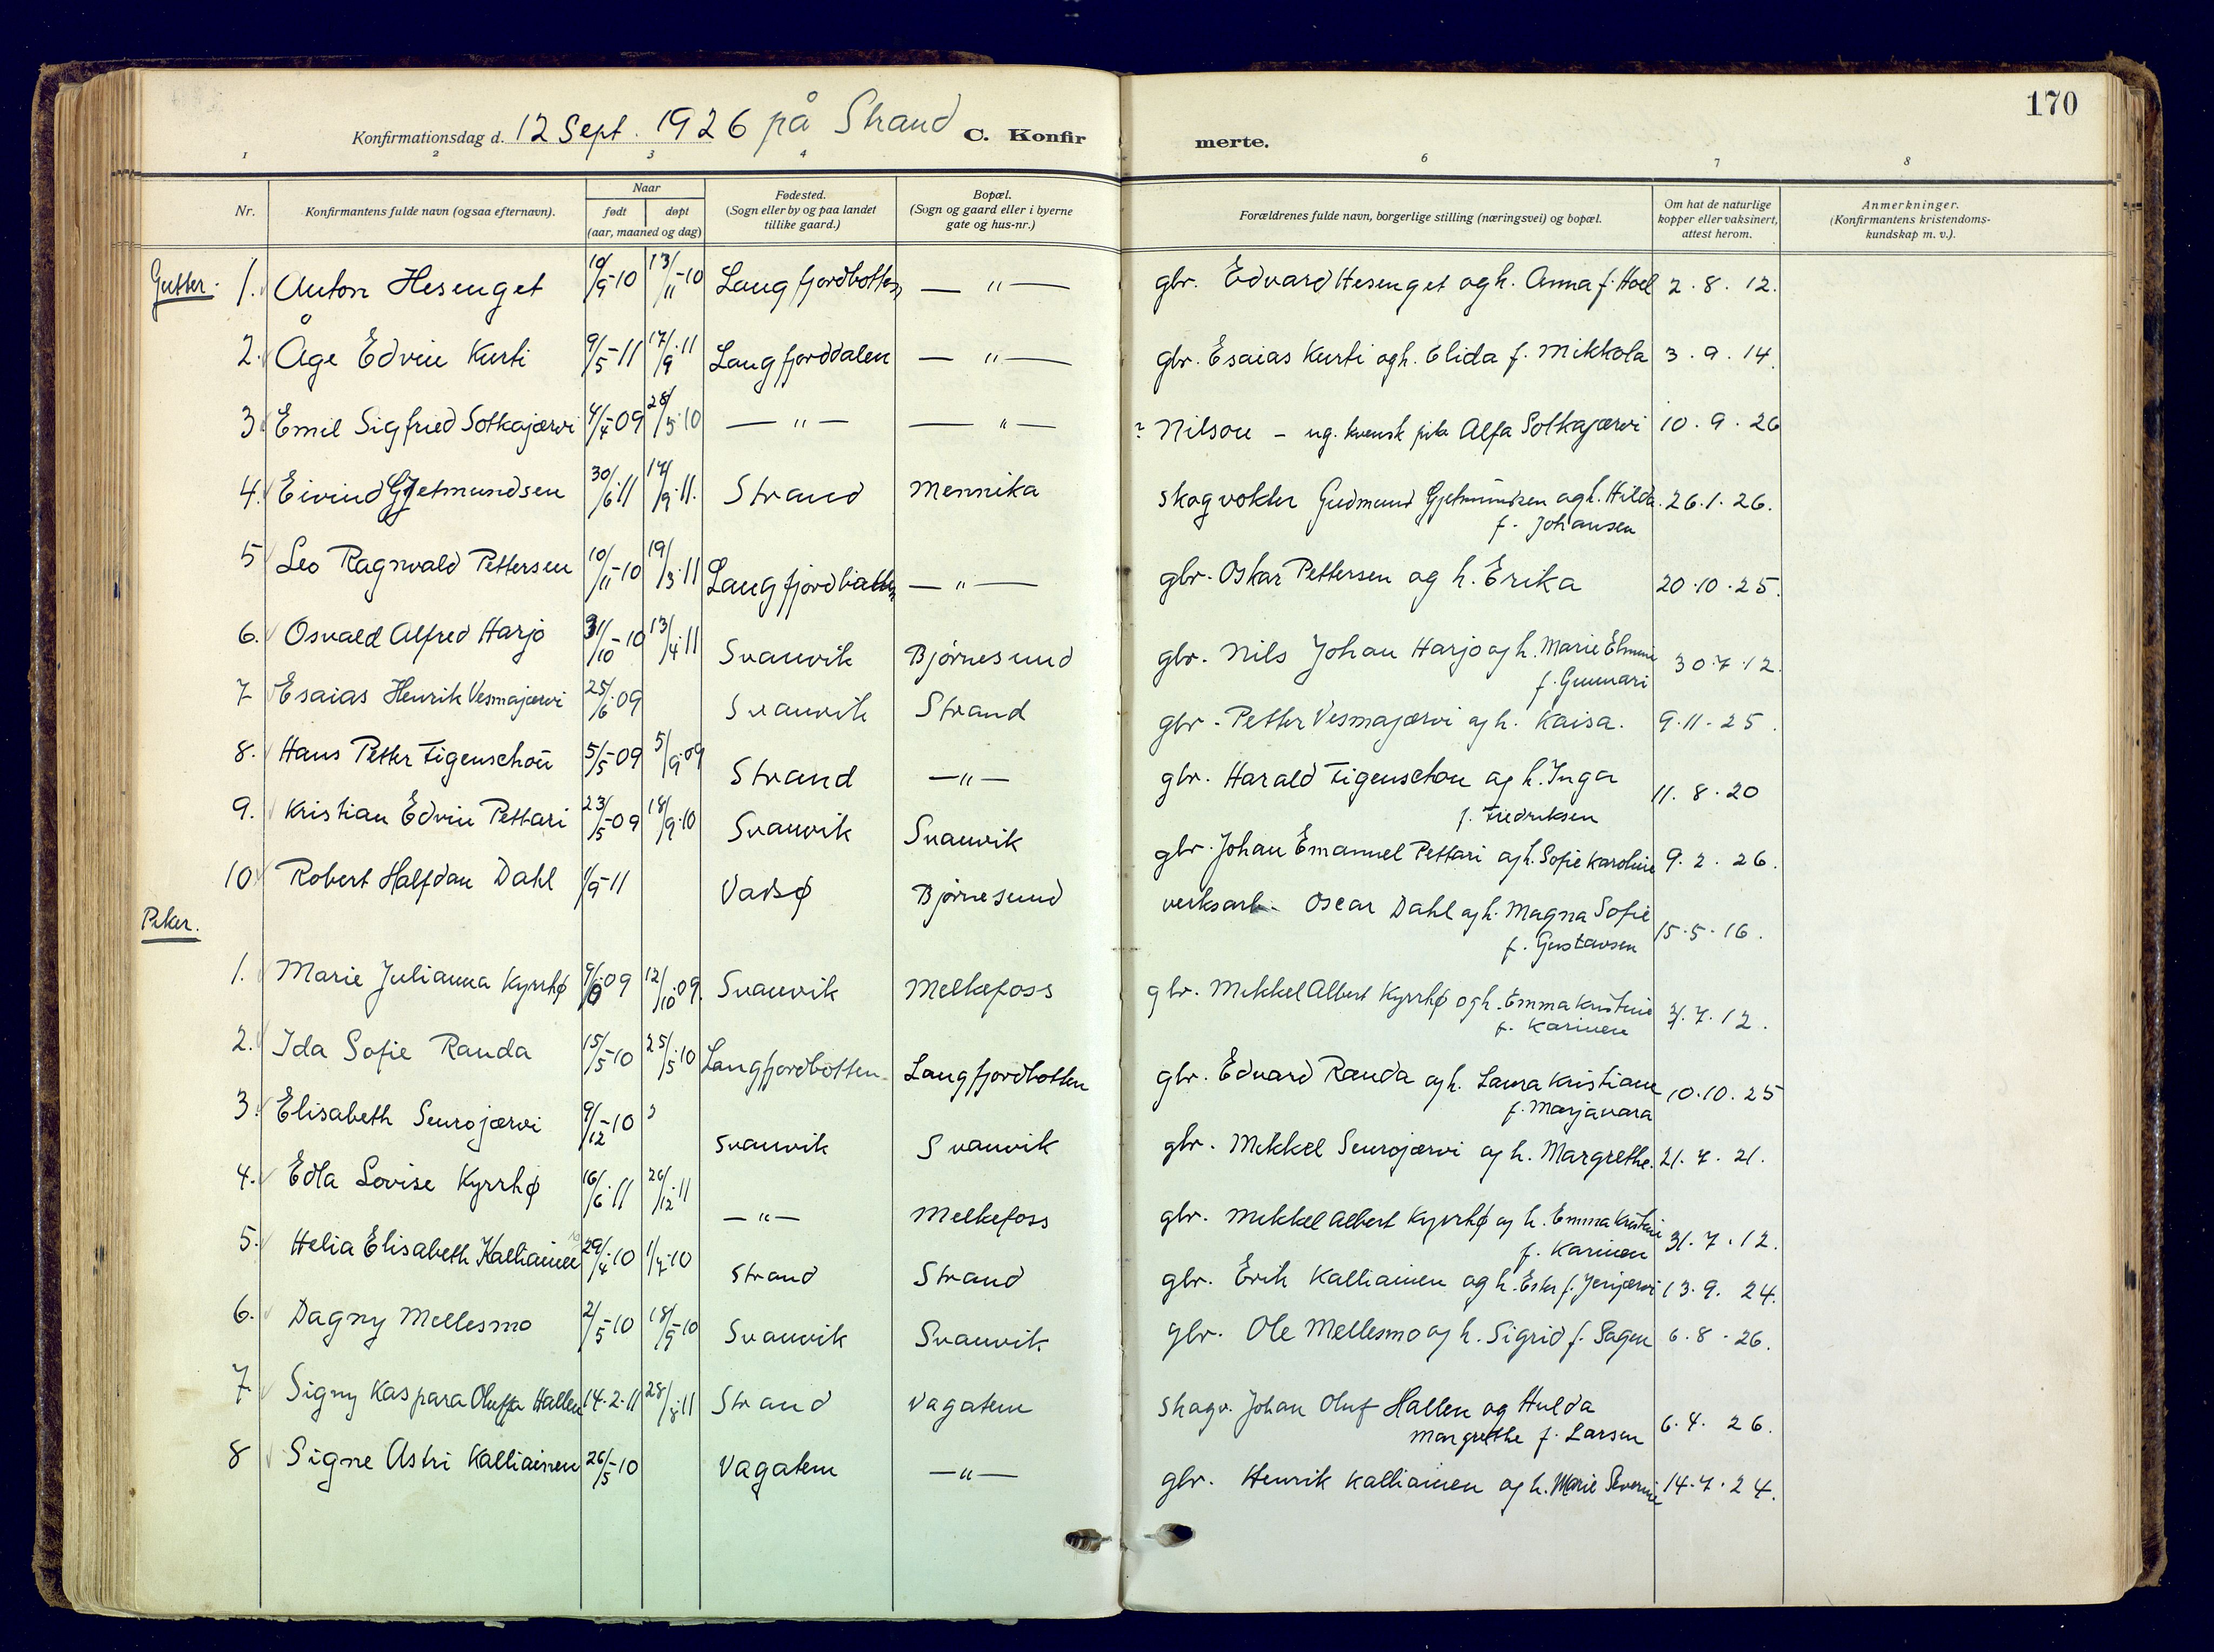 170
Konfirmationsdag d. 12 Sept. 1926 på Strand C. Konfirmerte.
1 2 3 4 6 7 8
Nr. Konfirmantens fulde navn (ogsaa efternavn). Naar født døpt (aar, maaned og dag) Fødested. (Sogn eller by og paa landet tillike gaard.) Bopæl. (Sogn og gaard eller i byerne gate og hus-nr.) Forældrenes fulde navn, borgerlige stilling (næringsvei) og bopæl. Om hat de naturlige kopper eller vaksinert, attest herom. Anmerkninger. (Konfirmantens kristendoms-kundskap m. v.).
Gutter.
1. Anton Hesenget 10/9-10 13/11-10 Langfjordbotten — " — gbr. Edvard Hesenget og h. Anna f. Hoel 2. 8. 12.
2. Åge Edvin Kurti 9/5-11 17/9.11 Langfjorddalen — " — gbr. Esaias Kurti og h. Elida f. Mikkola 3. 9. 14.
3 Emil Sigfried Sotkajærvi 4/4-09 28/5.10 — " — — " — ? Nilson - ug. kvensk pike Alfa Sotkajærvi 10. 9. 26
4. Eivind Gjetmundsen 30/6.11 17/9.11. Strand Mennika skogvokter Gudmund Gjetmundsen og h. Hilda f. Johansen 26. 1. 26.
5 Leo Ragnvald Pettersen 10/11-10 19/3.11 Langfjordbotten — " — gbr. Oskar Pettersen og h. Erika 20. 10. 25.
6. Osvald Alfred Harjo 31/10-10 13/4.11 Svanvik Bjørnesund gbr. Nils Johan Harjo og h. Marie f. 30. 7. 12.
7 Esaias Henrik Vesmajærvi 25/6.09 Svanvik Strand gbr. Petter Vesmajærvi og h. Kaisa. 9. 11. 25.
8. Hans Petter Figenschou 5/5-09 5/9.09 Strand — " — gbr. Harald Figenschou og h. Inga f. Fredriksen 11. 8. 20
9. Kristian Edvin Pettari 23/5-09 18/9.10 Svanvik Svanvik gbr. Johan Emanuel Pettari og h. Sofie Karoline 9. 2. 26.
10. Robert Halfdan Dahl 1/9-11 Vadsø Bjørnesund verksarb. Oscar Dahl og h. Magna Sofie f. Gustavsen 15. 5. 16.
Piker.
1. Marie Julianna Kyrrhø 9/9.09 12/10.09. Svanvik Melkefoss gbr. Mikkel Albert Kyrrhø og h. Emma Kristine f. Karinen 31. 7. 12.
2. Ida Sofie Randa 15/5-10 25/5.10 Langfjordbotten Langfjordbotten gbr. Edvard Randa og h. Laura Kristiane f. Marjavara 10. 10. 25
3. Elisabeth Seurojærvi 9/12-10 ? Svanvik Svanvik gbr. Mikkel Seurojærvi og h. Margrethe. 21. 7. 21.
4. Edla Lovise Kyrrhø 16/6.11 26/12.11 — " — Melkefoss gbr. Mikkel Albert Kyrrhø og h. Emma Kristine f. Karinen 31. 7. 12.
5. Helia Elisabeth Kalliainen 29/4.10 1/7.10 Strand Strand gbr. Erik Kalliainen og h. Ester f. Jerijærvi 13. 9. 24.
6. Dagny Mellesmo 2/5-10 18/9-10 Svanvik Svanvik gbr. Ole Mellesmo og h. Sigrid f. Sagen 6. 8. 26.
7 Signy Kaspara Oluffa Hallen 14.2.11 28/8.11 Strand Vagatem skogv. Johan Oluf Hallen og Hulda Margrethe f. Larsen 6. 4. 26.
8 Signe Astri Kalliainen 26/5-10 Vagatem — " — gbr. Henrik Kalliainen og h. Marie Severine 14. 7. 24.